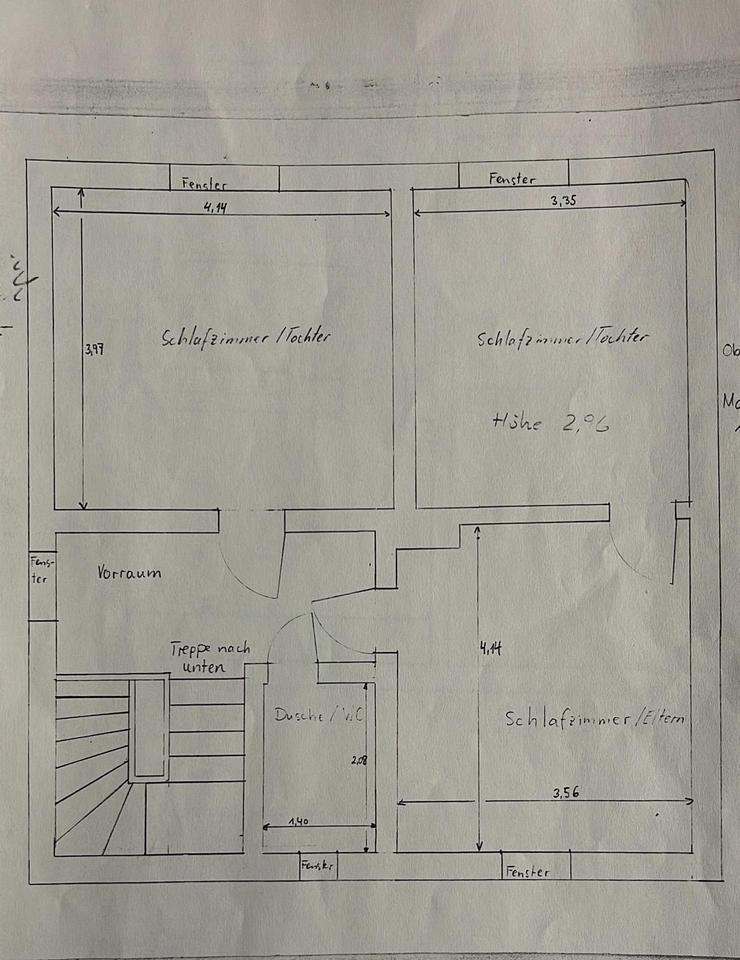 Fenster
Fenster
4,14
3,35
3,97
Schlafzimmer/Tochter
Schlafzimmer/Tochter
Höhe 2,96
Fens-
ter
Vorraum
Treppe nach
unten
4,14
Dusche/WC
Schlafzimmer/Eltern
2,08
3,56
1,40
Fenster
Fenster
Ob